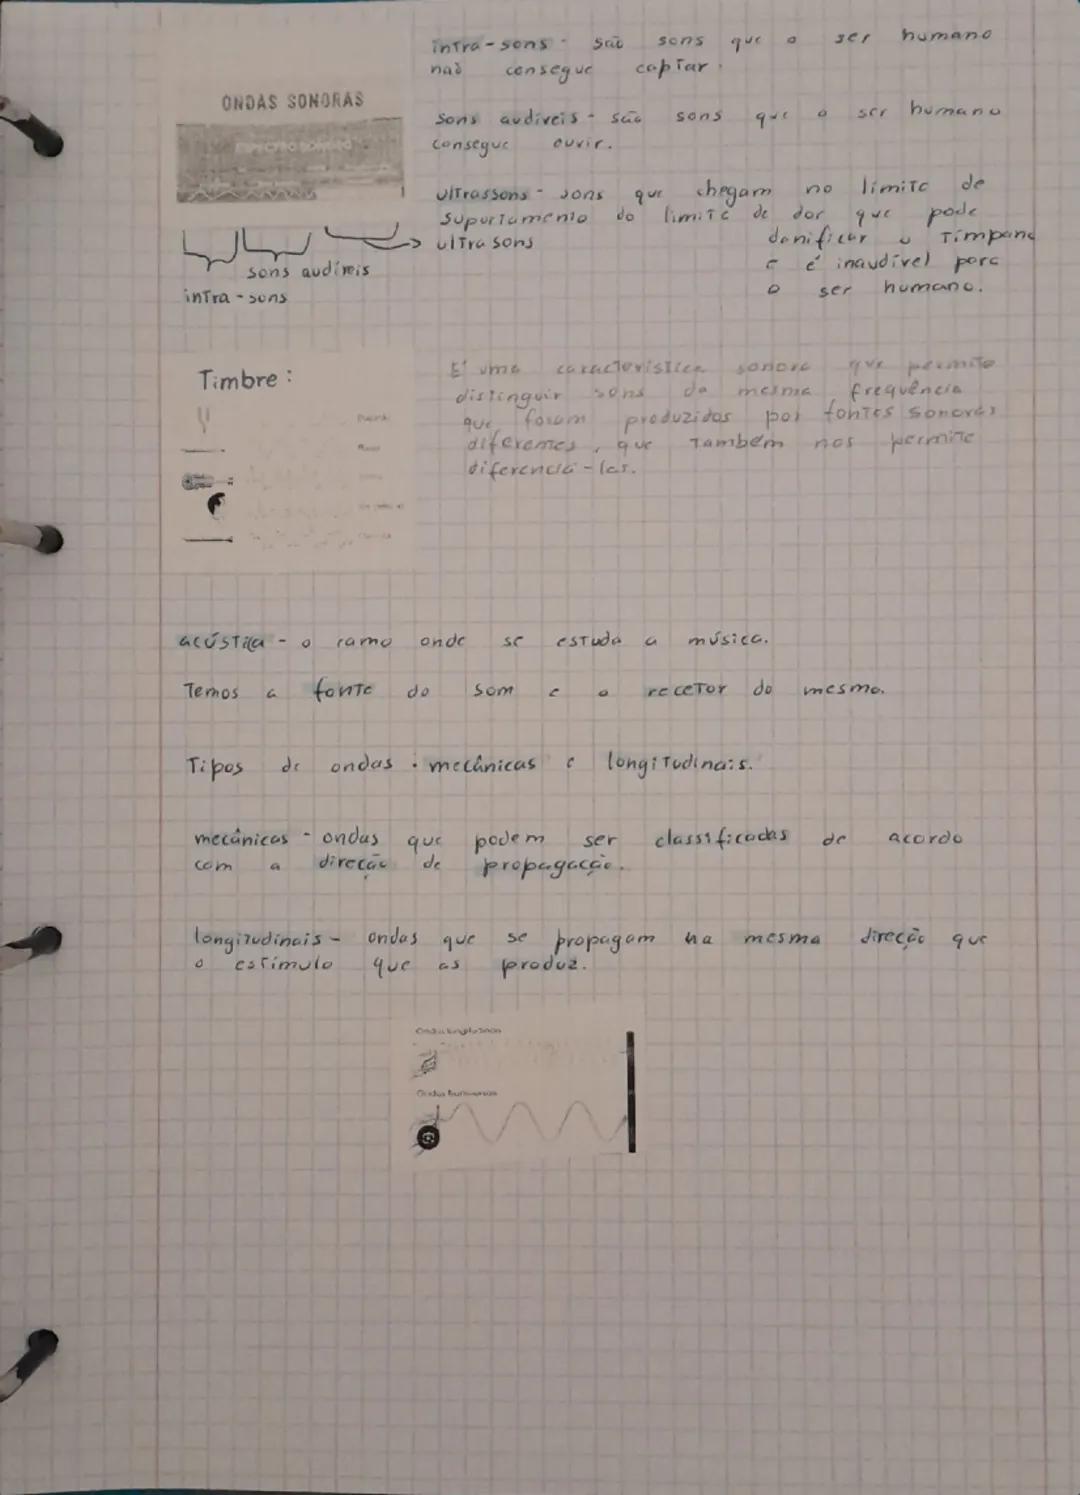 intra-sons - são sons que o ser humano
não consegue captar.
ONDAS SONORAS
ESPECTRO SONORO
sons audiveis - são sons que o ser humano
consegue ouvir.
ultrassons - sons que chegam no limite de
suportamento do limite de dor que pode
danificar o timpano
e é inaudível para
o ser humano.
ultrasons
sons audíveis
intra-sons
Timbre:
E' uma característica sonora que permite
distinguir sons da mesma frequência
que foram produzidos por fontes sonoras
diferentes, que também nos permite
diferenciá-las.
acústica - o ramo onde se estuda a música.
Temos a fonte do som e o recetor do mesmo.
Tipos de ondas: mecânicas e longitudinais.
mecânicas - ondas que podem ser classificadas de acordo
com a direção de propagação.
longitudinais - ondas que se propagam na mesma direção que
o estímulo que as produz.
Ondas longitudinais
Ondas transversais